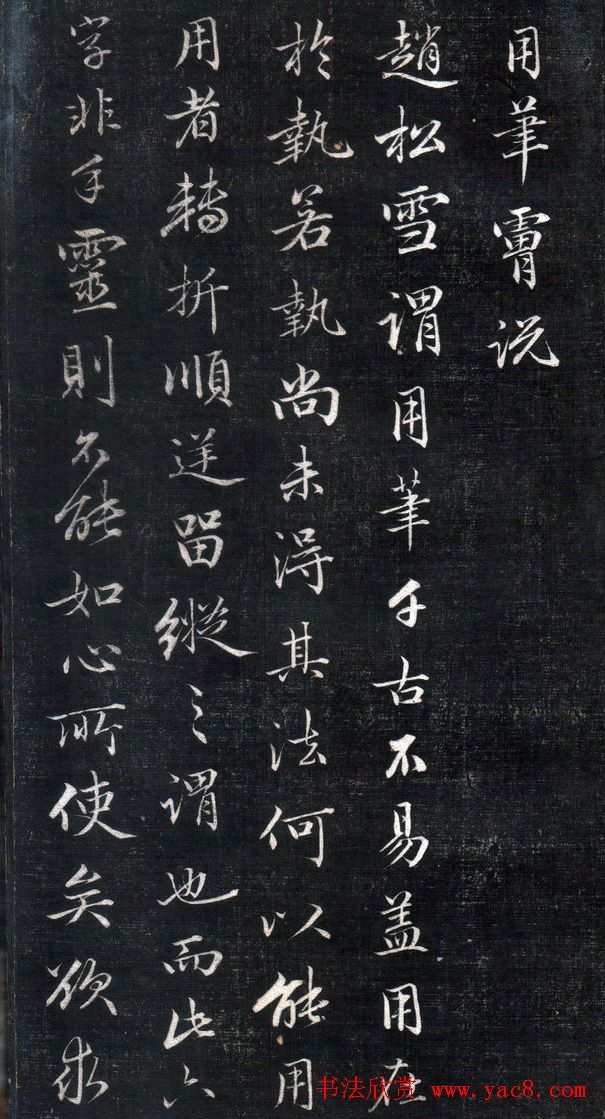 用筆说
趙松雪謂用筆千古不易盖用在
於執若執尚未得其法何以能用
用者轉折順逆留縱之謂也而此六
字非手靈則不能如心所使矣欲求
书法欣赏 www.yac8.com